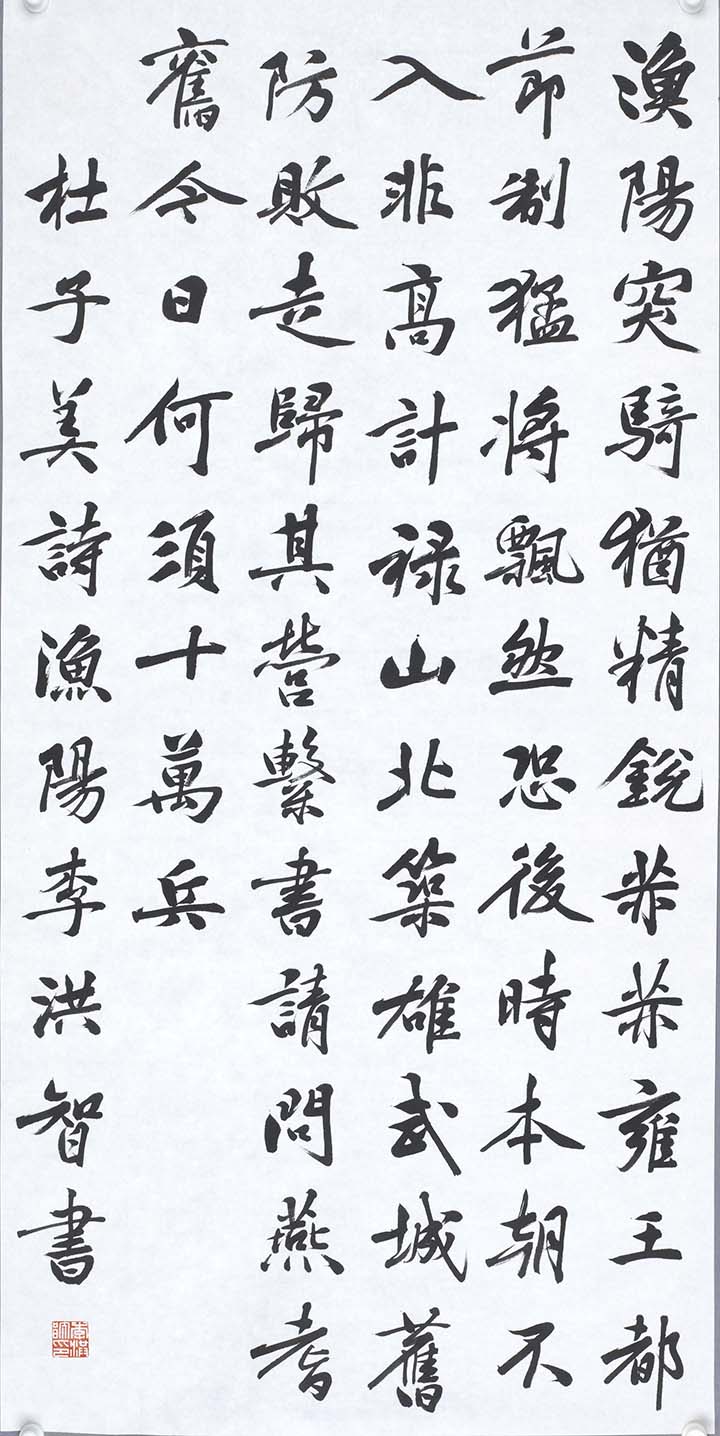 漁陽突騎猶精銳赫赫雍王都
節制猛將飄然恐後時本朝不
入非高計禄山北築雄武城舊
防敗走歸其營繫書請問燕耆
舊今日何須十萬兵
杜子美詩漁陽李洪智書